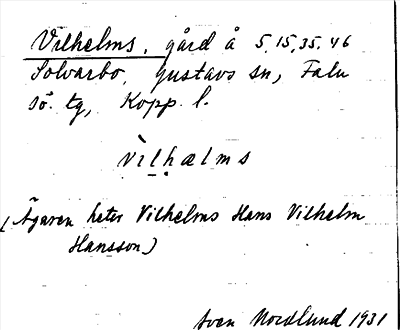 Vilhelms, gård å 5.15,35.46
Solvarbo, Gustavs sn, Falu
sö. tg, Kopp. l.
vìlḥælms
(Ägaren heter Vilhelms Hans Vilhelm
Hansson)
Sven Nordlund 1931